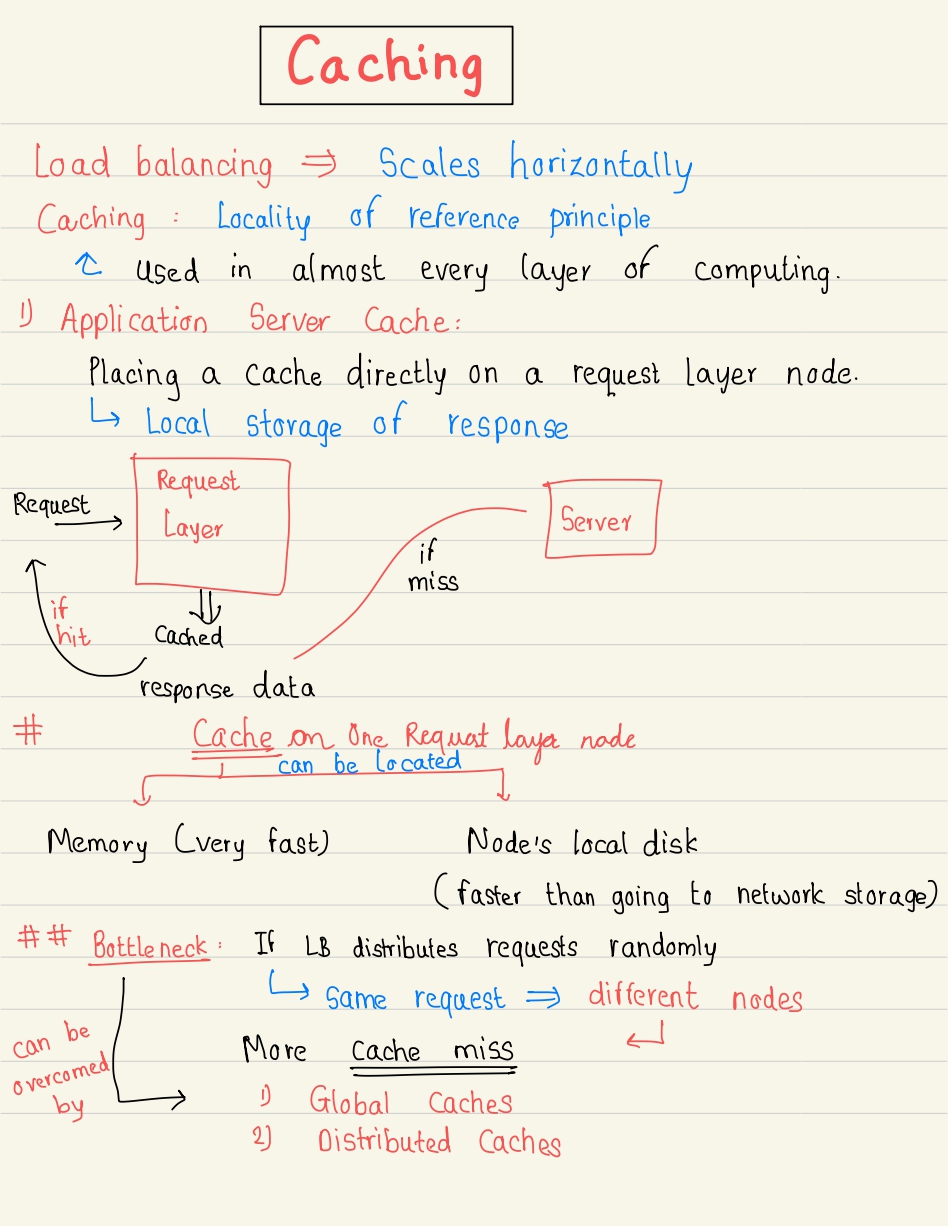 Caching
Load balancing ⇒ Scales horizontally
Caching : Locality of reference principle
used in almost every layer of computing.
1) Application Server Cache:
Placing a cache directly on a request layer node.
↳ Local storage of response
Request
Layer
Request
Server
if
miss
if
hit
Cached
response data
# Cache on One Request layer node
can be located
Memory (very fast)
Node's local disk
(faster than going to network storage)
## Bottleneck: If LB distributes requests randomly
↳ Same request ⇒ different nodes
can be
overcomed
by
More Cache miss
1) Global Caches
2) Distributed Caches